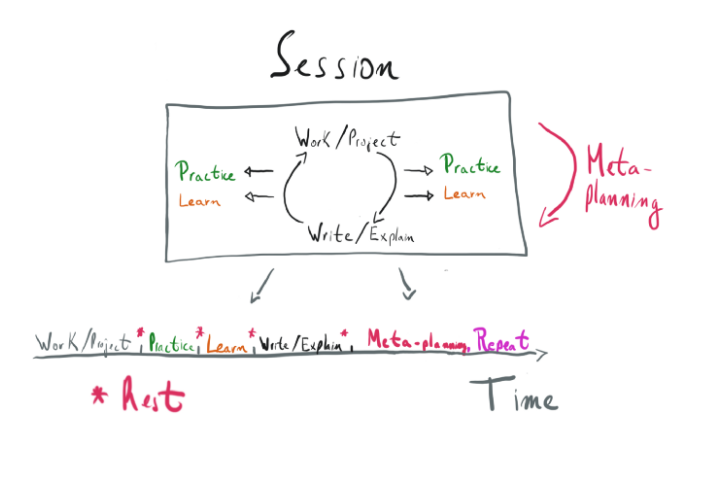 Session
Work/Project
Practice
Learn
Practice
Learn
Write/Explain
Meta-
planning
Work/Project * Practice * Learn * Write/Explain * Meta-planning Repeat
* Rest
Time